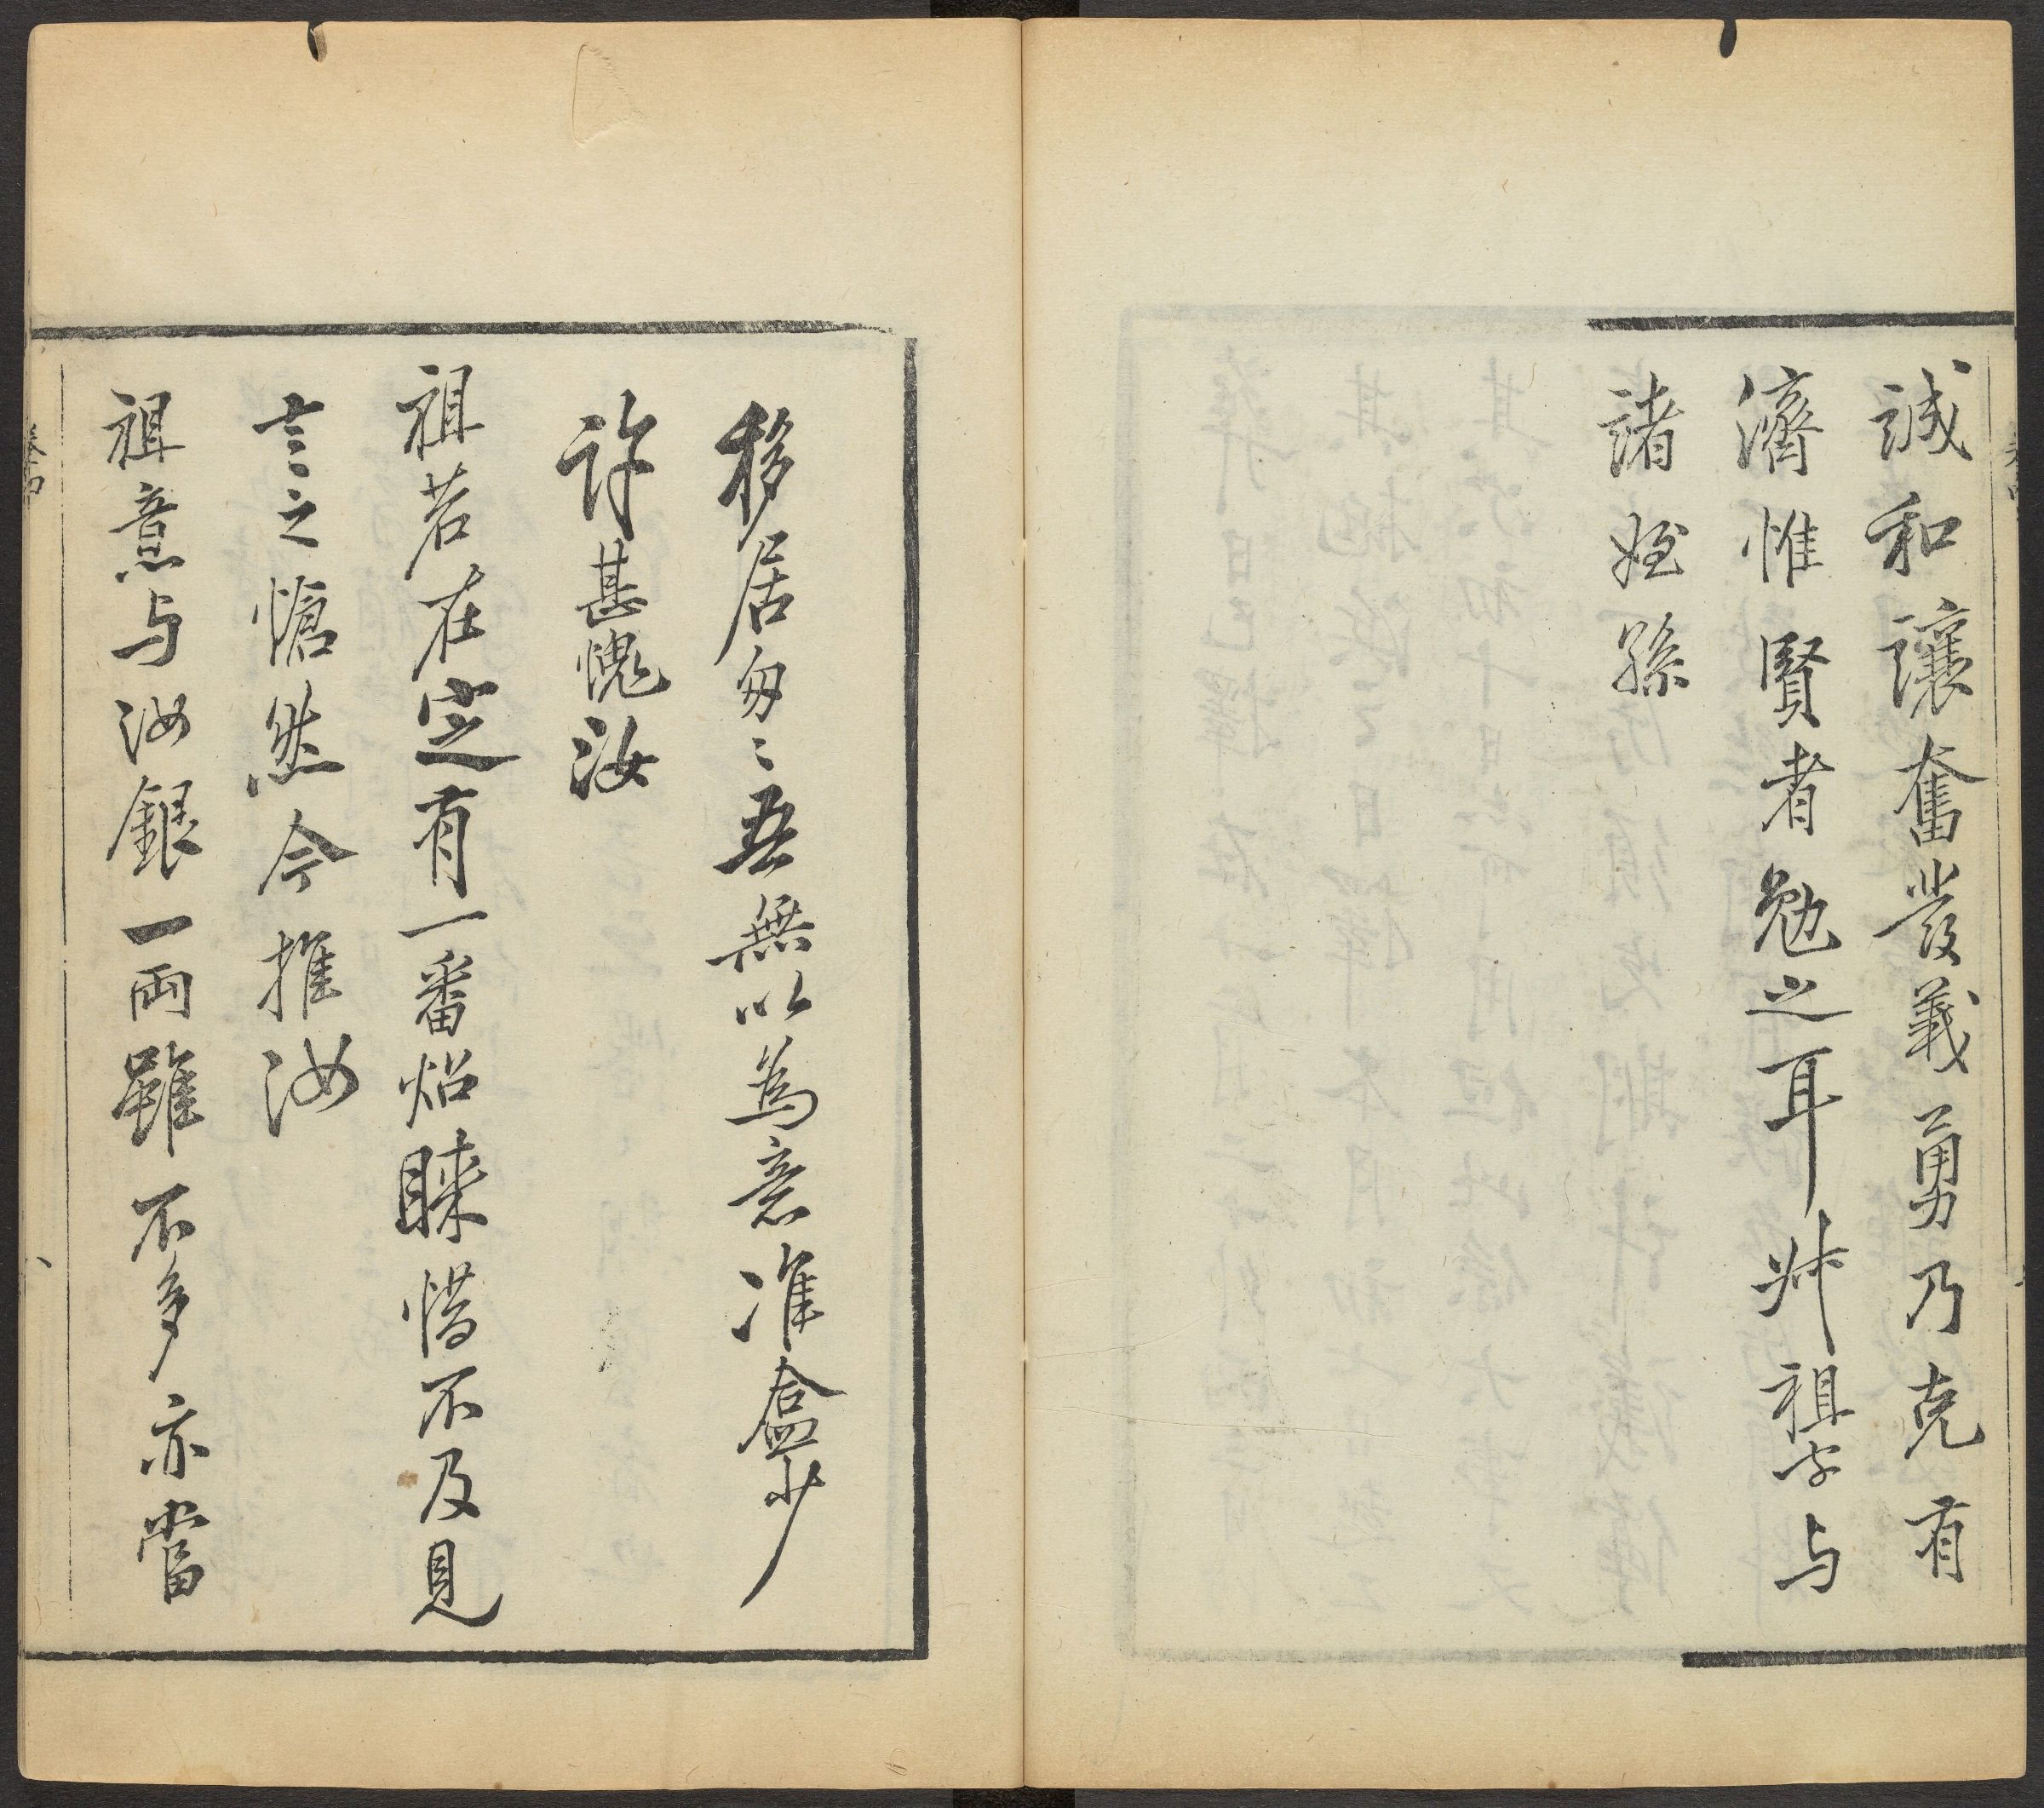 誠和讓奮發義勇乃克有
濟惟賢者勉之耳叔祖字与
諸姪孫
移居匆〻吾無以為意准盒少
許甚愧汝
祖若在定有一番炤睞惜不及見
言之愴然今推汝
祖意与汝銀一兩雖不多亦當